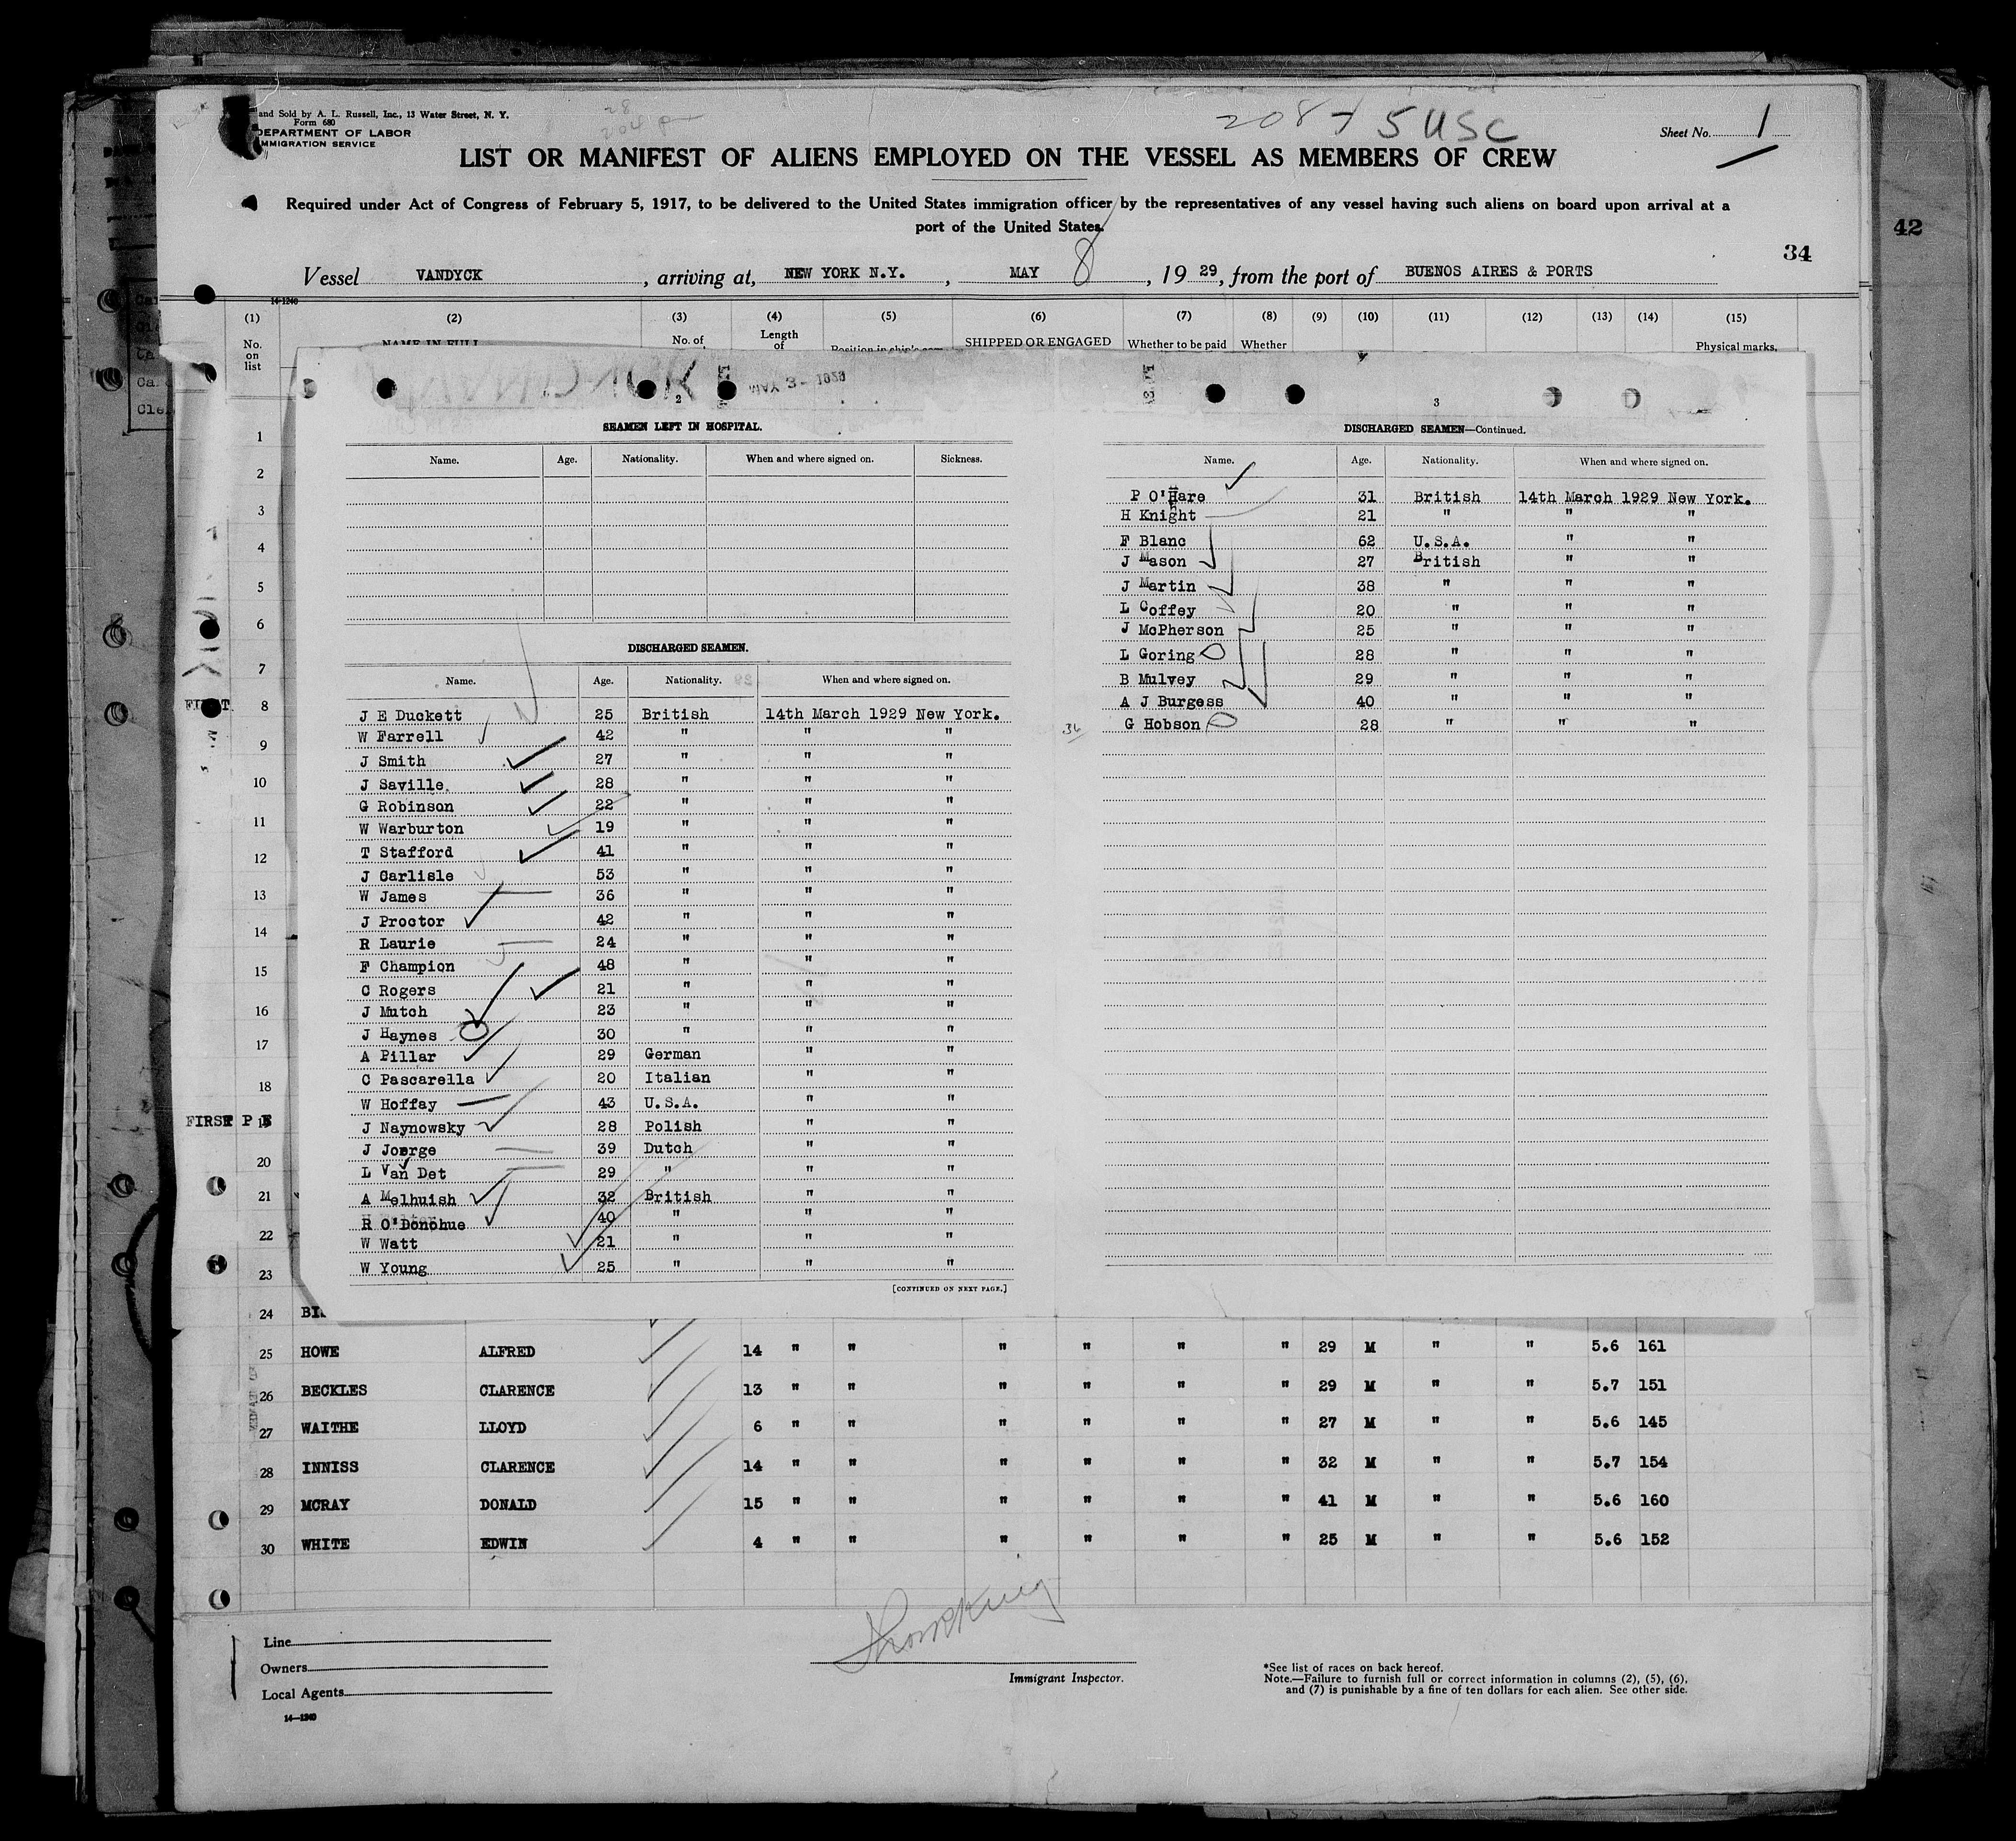 and Sold by A. L. Russell, Inc., 13 Water Street, N. Y.
Form 680
DEPARTMENT OF LABOR
IMMIGRATION SERVICE
208 + 5 USC
Sheet No. 1
LIST OR MANIFEST OF ALIENS EMPLOYED ON THE VESSEL AS MEMBERS OF CREW
Required under Act of Congress of February 5, 1917, to be delivered to the United States immigration officer by the representatives of any vessel having such aliens on board upon arrival at a
port of the United States.
42
34
Vessel VANDYCK, arriving at, NEW YORK N.Y., MAY 8, 1929, from the port of BUENOS AIRES & PORTS
14-1240
(1) (2) (3) (4) (5) (6) (7) (8) (9) (10) (11) (12) (13) (14) (15)
No. on list NAME IN FULL No. of Length of SHIPPED OR ENGAGED Whether to be paid Whether Physical marks,
MAY 3 - 1929
2
SEAMEN LEFT IN HOSPITAL.
Name. Age. Nationality. When and where signed on. Sickness.
DISCHARGED SEAMEN.
Name. Age. Nationality. When and where signed on.
J E Duckett 25 British 14th March 1929 New York.
W Farrell 42 " " "
J Smith 27 " " "
J Saville. 28 " " "
G Robinson 22 " " "
W Warburton 19 " " "
T Stafford 41 " " "
J Carlisle 53 " " "
W James 36 " " "
J Proctor 42 " " "
R Laurie 24 " " "
F Champion 48 " " "
C Rogers 21 " " "
J Mutch 23 " " "
J Haynes 30 " " "
A Pillar 29 German " "
C Pascarella 20 Italian " "
W Hoffay 43 U.S.A. " "
J Naynowsky 28 Polish " "
J Joerge 39 Dutch " "
L Van Det 29 " " "
A Melhuish 32 British " "
R O'Donohue 40 " " "
W Watt 21 " " "
W Young 25 " " "
[CONTINUED ON NEXT PAGE.]
3
DISCHARGED SEAMEN—Continued.
Name. Age. Nationality. When and where signed on.
P O'Hare 31 British 14th March 1929 New York.
H Knight 21 " " "
F Blanc 62 U.S.A. " "
J Mason 27 British " "
J Martin 38 " " "
L Coffey 20 " " "
J McPherson 25 " " "
L Goring 28 " " "
B Mulvey 29 " " "
A J Burgess 40 " " "
36
G Hobson 28 " " "
1
2
3
4
5
6
7
8
9
10
11
12
13
14
15
16
17
18
FIRST P
19
20
21
22
23
24
25 HOWE ALFRED 14 " " " " " " 29 M " " 5.6 161
26 BECKLES CLARENCE 13 " " " " " " 29 M " " 5.7 151
27 WAITHE LLOYD 6 " " " " " " 27 M " " 5.6 145
28 INNISS CLARENCE 14 " " " " " " 32 M " " 5.7 154
29 MCRAY DONALD 15 " " " " " " 41 M " " 5.6 160
30 WHITE EDWIN 4 " " " " " " 25 M " " 5.6 152
Line
Owners
Local Agents
14—1240
Immigrant Inspector.
*See list of races on back hereof.
Note.—Failure to furnish full or correct information in columns (2), (5), (6),
and (7) is punishable by a fine of ten dollars for each alien. See other side.